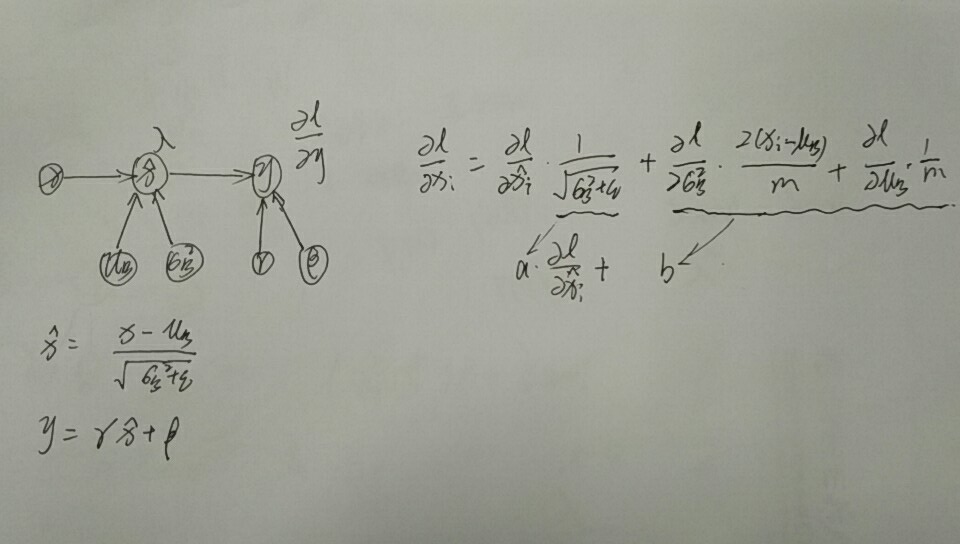 λ
∂l/∂y
x → x̂ → y
μ_B σ_B² γ β
∂l/∂x_i = ∂l/∂x̂_i · 1/√(σ_B²+ε) + ∂l/∂σ_B² · 2(x_i−μ_B)/m + ∂l/∂μ_B · 1/m
a · ∂l/∂x̂_i + b
x̂ = (x − μ_B)/√(σ_B²+ε)
y = γx̂ + β